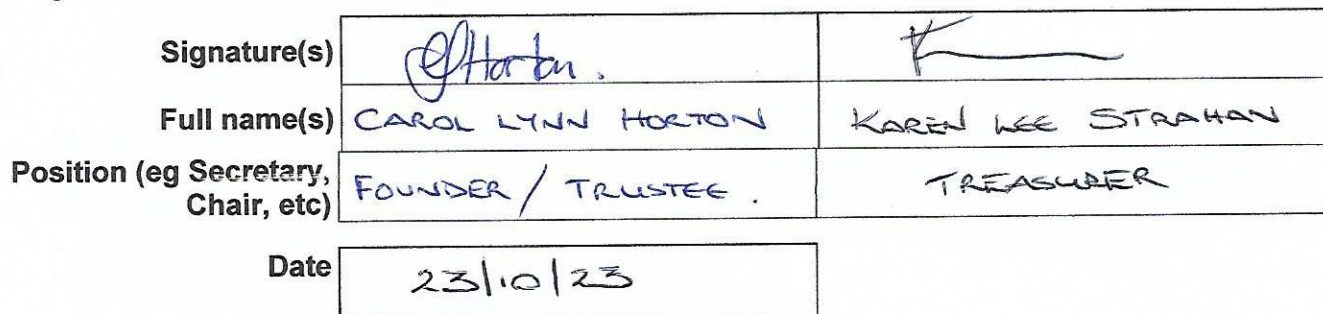 Signature(s) CHorton.
Full name(s) CAROL LYNN HORTON KAREN LEE STRAHAN
Position (eg Secretary, Chair, etc) FOUNDER / TRUSTEE . TREASURER
Date 23/10/23